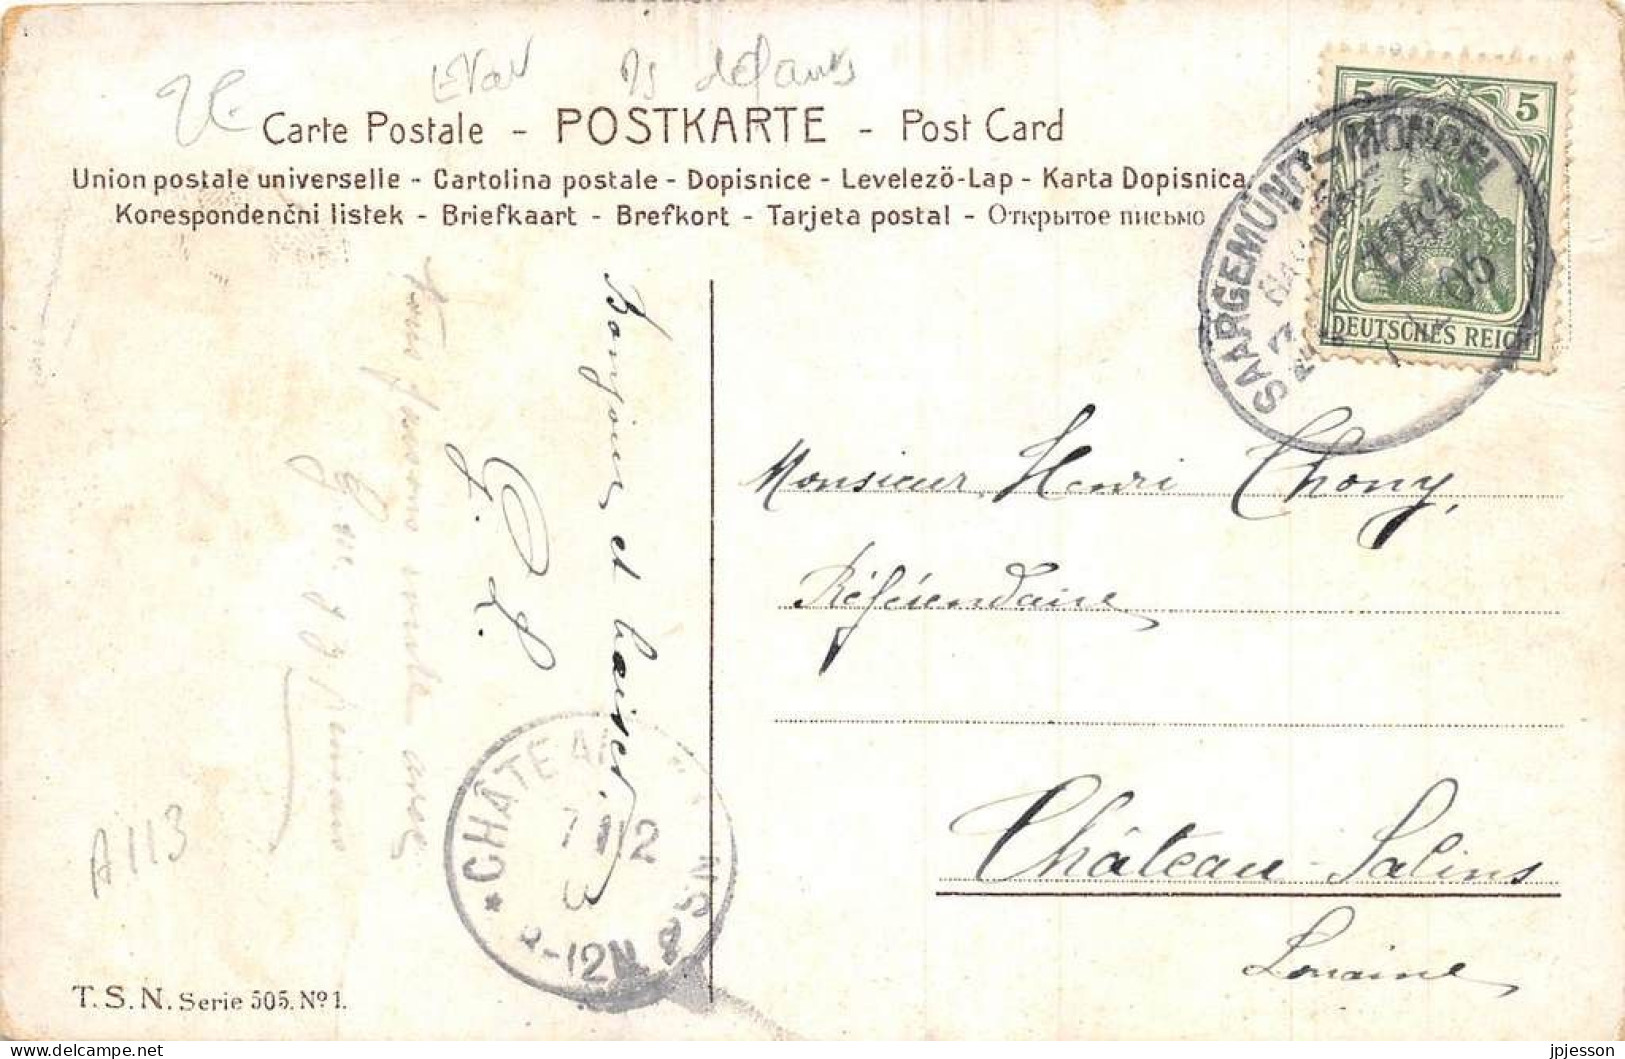 état Ds défauts
Carte Postale - POSTKARTE - Post Card
Union postale universelle - Cartolina postale - Dopisnice - Levelezö-Lap - Karta Dopisnica
Korespondenčni listek - Briefkaart - Brefkort - Tarjeta postal - Открытое письмо
5 5
DEUTSCHES REICH
SAARGEMÜND-MONCEL
1244
05
Bonjour et baiser
G. L.
Monsieur Henri Thony,
Référendaire
Château-Salins
Lorraine
* CHÂTEAU
7 12
-12N
A113
T.S.N. Serie 505. Nº 1.
jpjesson